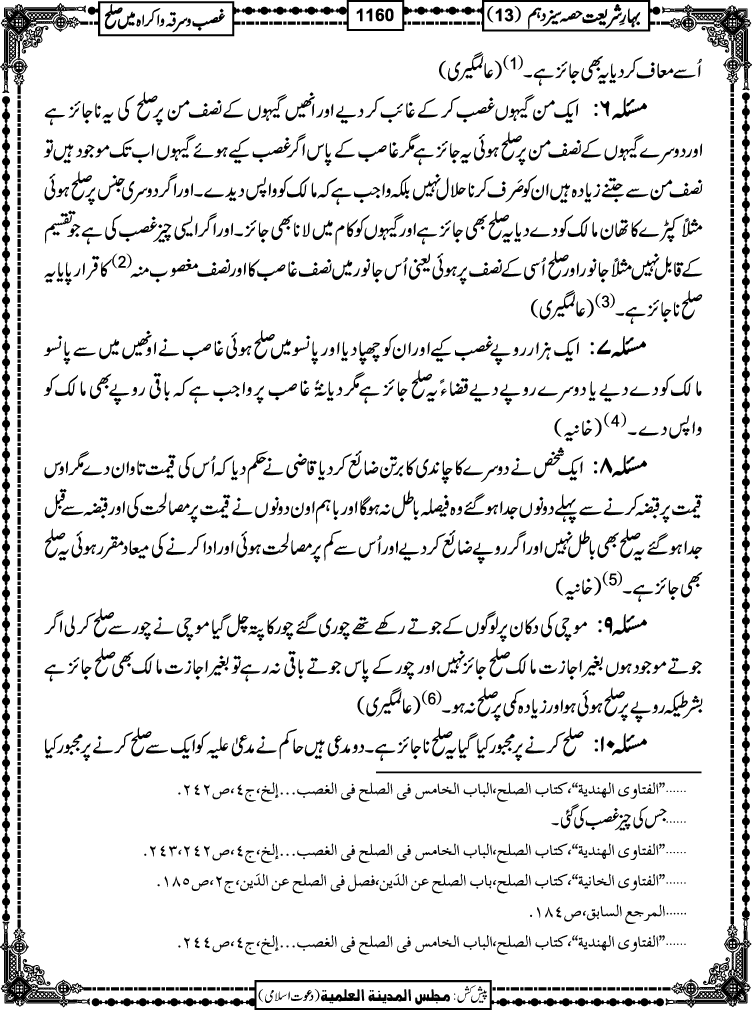 بہارِ شریعت حصہ سیزدہم (13)
1160
غصب و سرقہ واکراہ میں صلح
اُسے معاف کر دیا یہ بھی جائز ہے۔(1) (عالمگیری)
مسئلہ ۶: ایک من گیہوں غصب کر کے غائب کر دیے اور انھیں گیہوں کے نصف من پر صلح کی یہ ناجائز ہے
اور دوسرے گیہوں کے نصف من پر صلح ہوئی یہ جائز ہے مگر غاصب کے پاس اگر غصب کیے ہوئے گیہوں اب تک موجود ہیں تو
نصف من سے جتنے زیادہ ہیں ان کو صَرف کرنا حلال نہیں بلکہ واجب ہے کہ مالک کو واپس دیدے۔ اور اگر دوسری جنس پر صلح ہوئی
مثلاً کپڑے کا تھان مالک کو دے دیا یہ صلح بھی جائز ہے اور گیہوں کو کام میں لانا بھی جائز۔ اور اگر ایسی چیز غصب کی ہے جو تقسیم
کے قابل نہیں مثلاً جانور اور صلح اُسی کے نصف پر ہوئی یعنی اُس جانور میں نصف غاصب کا اور نصف مغصوب منہ(2) کا قرار پایا یہ
صلح ناجائز ہے۔(3) (عالمگیری)
مسئلہ ۷: ایک ہزار روپے غصب کیے اور ان کو چھپا دیا اور پانسو میں صلح ہوئی غاصب نے اونھیں میں سے پانسو
مالک کو دے دیے یا دوسرے روپے دیے قضاءً یہ صلح جائز ہے مگر دیانۃً غاصب پر واجب ہے کہ باقی روپے بھی مالک کو
واپس دے۔(4) (خانیہ)
مسئلہ ۸: ایک شخص نے دوسرے کا چاندی کا برتن ضائع کر دیا قاضی نے حکم دیا کہ اُس کی قیمت تاوان دے مگر اوس
قیمت پر قبضہ کرنے سے پہلے دونوں جدا ہو گئے وہ فیصلہ باطل نہ ہوگا اور باہم اون دونوں نے قیمت پر مصالحت کی اور قبضہ سے قبل
جدا ہو گئے یہ صلح بھی باطل نہیں اور اگر روپے ضائع کر دیے اور اُس سے کم پر مصالحت ہوئی اور ادا کرنے کی میعاد مقرر ہوئی یہ صلح
بھی جائز ہے۔(5) (خانیہ)
مسئلہ ۹: موچی کی دکان پر لوگوں کے جوتے رکھے تھے چوری گئے چور کا پتہ چل گیا موچی نے چور سے صلح کر لی اگر
جوتے موجود ہوں بغیر اجازتِ مالک صلح جائز نہیں اور چور کے پاس جوتے باقی نہ رہے تو بغیر اجازت مالک بھی صلح جائز ہے
بشرطیکہ روپے پر صلح ہوئی ہو اور زیادہ کمی پر صلح نہ ہو۔(6) (عالمگیری)
مسئلہ ۱۰: صلح کرنے پر مجبور کیا گیا یہ صلح ناجائز ہے۔ دو مدعی ہیں حاکم نے مدعیٰ علیہ کو ایک سے صلح کرنے پر مجبور کیا
......"الفتاوی الھندیة"، کتاب الصلح، الباب الخامس فی الصلح فی الغصب...إلخ، ج٤، ص٢٤٢.
......جس کی چیز غصب کی گئی۔
......"الفتاوی الھندیة"، کتاب الصلح، الباب الخامس فی الصلح فی الغصب...إلخ، ج٤، ص٢٤٢،٢٤٣.
......"الفتاوی الخانیة"، کتاب الصلح، باب الصلح عن الدَین، فصل فی الصلح عن الدَین، ج٢، ص١٨٥.
......المرجع السابق، ص١٨٤.
......"الفتاوی الھندیة"، کتاب الصلح، الباب الخامس فی الصلح فی الغصب...إلخ، ج٤، ص٢٤٤.
پیش کش: مجلس المدینة العلمیة (دعوت اسلامی)